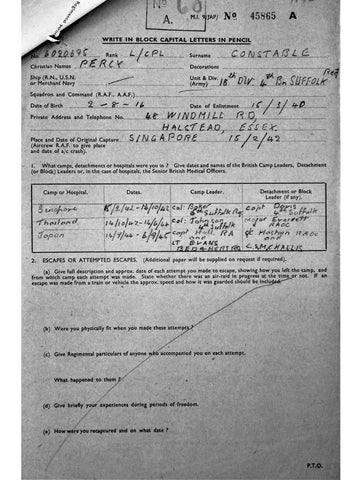 A. M.I. 9/JAP/ No 45865 A
WRITE IN BLOCK CAPITAL LETTERS IN PENCIL
No. 6020695 Rank L/CPL Surname CONSTABLE
Christian Names PERCY Decorations
Ship (R.N., U.S.N. or Merchant Navy) Unit & Div. (Army) 18th DIV 4th Bn SUFFOLK Reg
Squadron and Command (R.A.F. A.A.F.)
Date of Birth 2-8-16 Date of Enlistment 15/3/40
Private Address and Telephone No. 48 WINDMILL RD,
HALSTEAD, ESSEX.
Place and Date of Original Capture SINGAPORE 15/2/42
(Aircrew R.A.F. to give place and date of a/c crash).
1. What camps, detachments or hospitals were you in? Give dates and names of the British Camp Leaders, Detachment
(or Block) Leaders or, in case of hospitals, the Senior British Medical Officers.
Camp or Hospital. Dates. Camp Leader. Detachment or Block Leader (if any).
Singapore 15/2/42-14/10/42 Col: Baker Capt Davis
Suffolk Reg 4th Suffolk
Thailand 14/10/42-14/6/44 Col: Johnson Major Everett
4th Suffolk RAOC
Japan Capt Hall RA Mostyn RAOC
and and
LT EVANS C.S.M CHALLIS
BEDS & HERTS RG
2. ESCAPES OR ATTEMPTED ESCAPES. (Additional paper will be supplied on request if required).
(a) Give full description and approx. date of each attempt you made to escape, showing how you left the camp, and
from which camp each attempt was made. State whether there was an air-raid in progress at the time or not. If an
escape was made from a train or vehicle the approx. speed and how it was guarded should be included.
(b) Were you physically fit when you made these attempts?
(c) Give Regimental particulars of anyone who accompanied you on each attempt.
What happened to them?
(d) Give briefly your experiences during periods of freedom.
(e) How were you recaptured and on what date?
P.T.O.